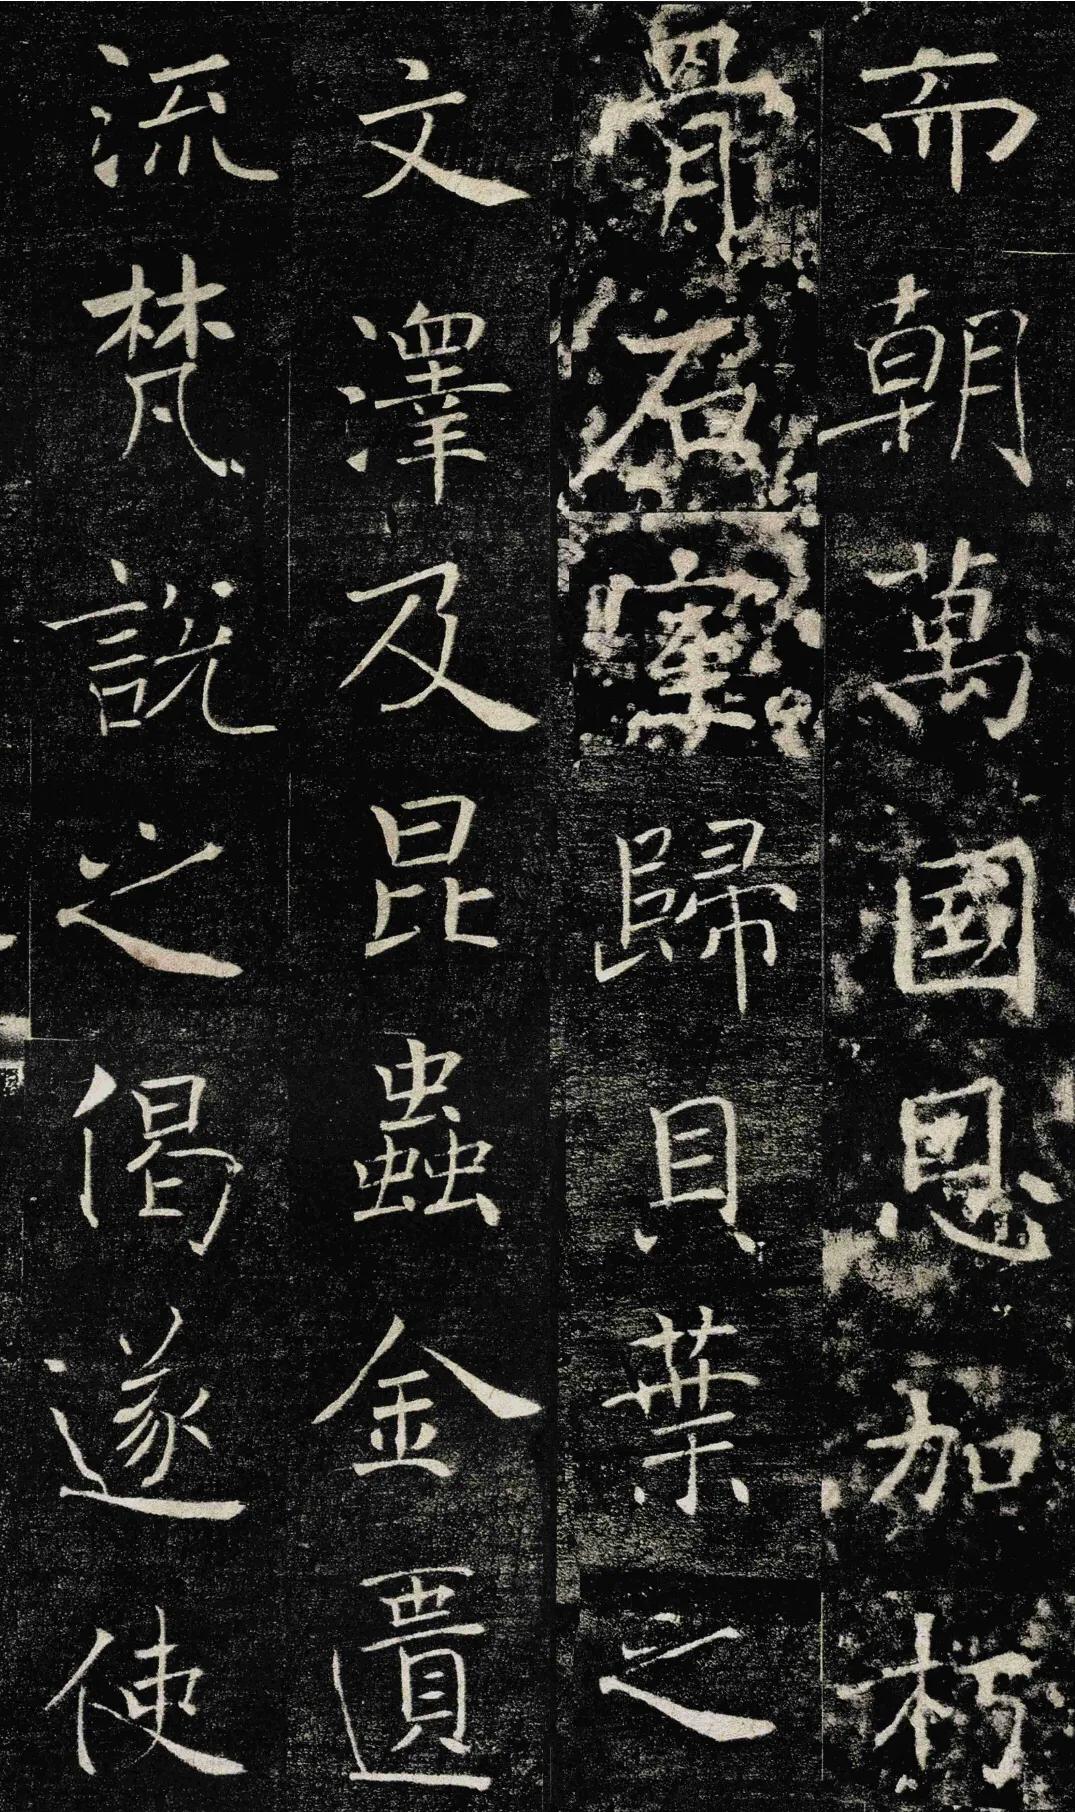 而朝萬國恩加朽
骨石室歸貝葉之
文澤及昆蟲金匱
流梵說之偈遂使